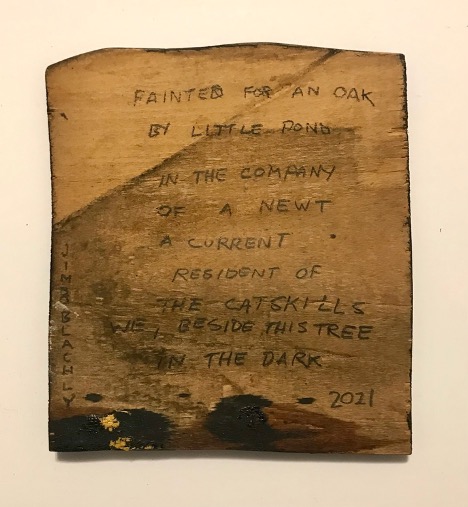 PAINTED FOR AN OAK
BY LITTLE POND
IN THE COMPANY
OF A NEWT
A CURRENT
RESIDENT OF
THE CATSKILLS
WE, BESIDE THIS TREE
IN THE DARK
2021
JIMBO BLACHLY